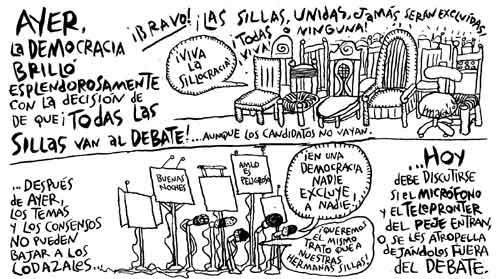 AYER,
LA DEMOCRACIA
BRILLÓ
ESPLENDOROSAMENTE
CON LA DECISIÓN DE
DE QUE ¡TODAS LAS
SILLAS VAN AL DEBATE!...AUNQUE LOS CANDIDATOS NO VAYAN.
¡BRAVO! ¡LAS SILLAS, UNIDAS, JAMÁS SERÁN EXCLUIDAS!
¡TODAS O NINGUNA!
VIVA!
¡VIVA
LA
SILLOCRACIA!
...DESPUÉS
DE AYER,
LOS TEMAS
Y LOS CONSENSOS
NO PUEDEN
BAJAR A LOS
LODAZALES...
BUENAS
NOCHES
AMLO
ES
PELIGROSO
¡EN UNA
DEMOCRACIA
NADIE
EXCLUYE
A NADIE!
¡QUEREMOS
EL MISMO
TRATO QUE A
NUESTRAS
HERMANAS SILLAS!
...HOY
DEBE DISCUTIRSE
SI EL MICRÓFONO
Y EL TELEPRONTER
DEL PEJE ENTRAN,
O SE LES ATROPELLA
DEJÁNDOLOS FUERA
DEL DEBATE.